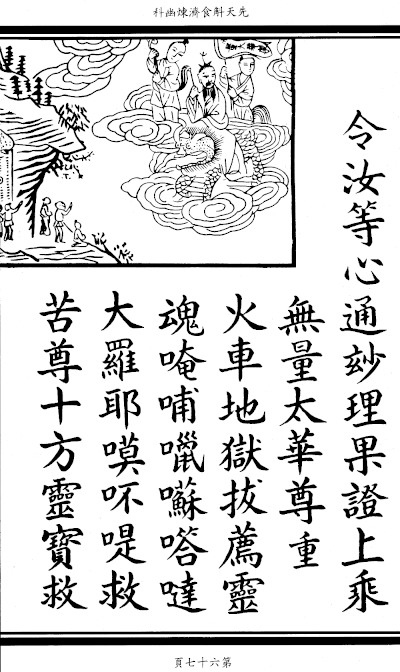 先天斛食濟煉幽科
令汝等心通玅理果證上乘
無量太華尊重
火車地獄拔薦靈
魂唵哺囌嗒噠
大羅耶嗼吥救
苦尊十方靈寶救
第六十七頁